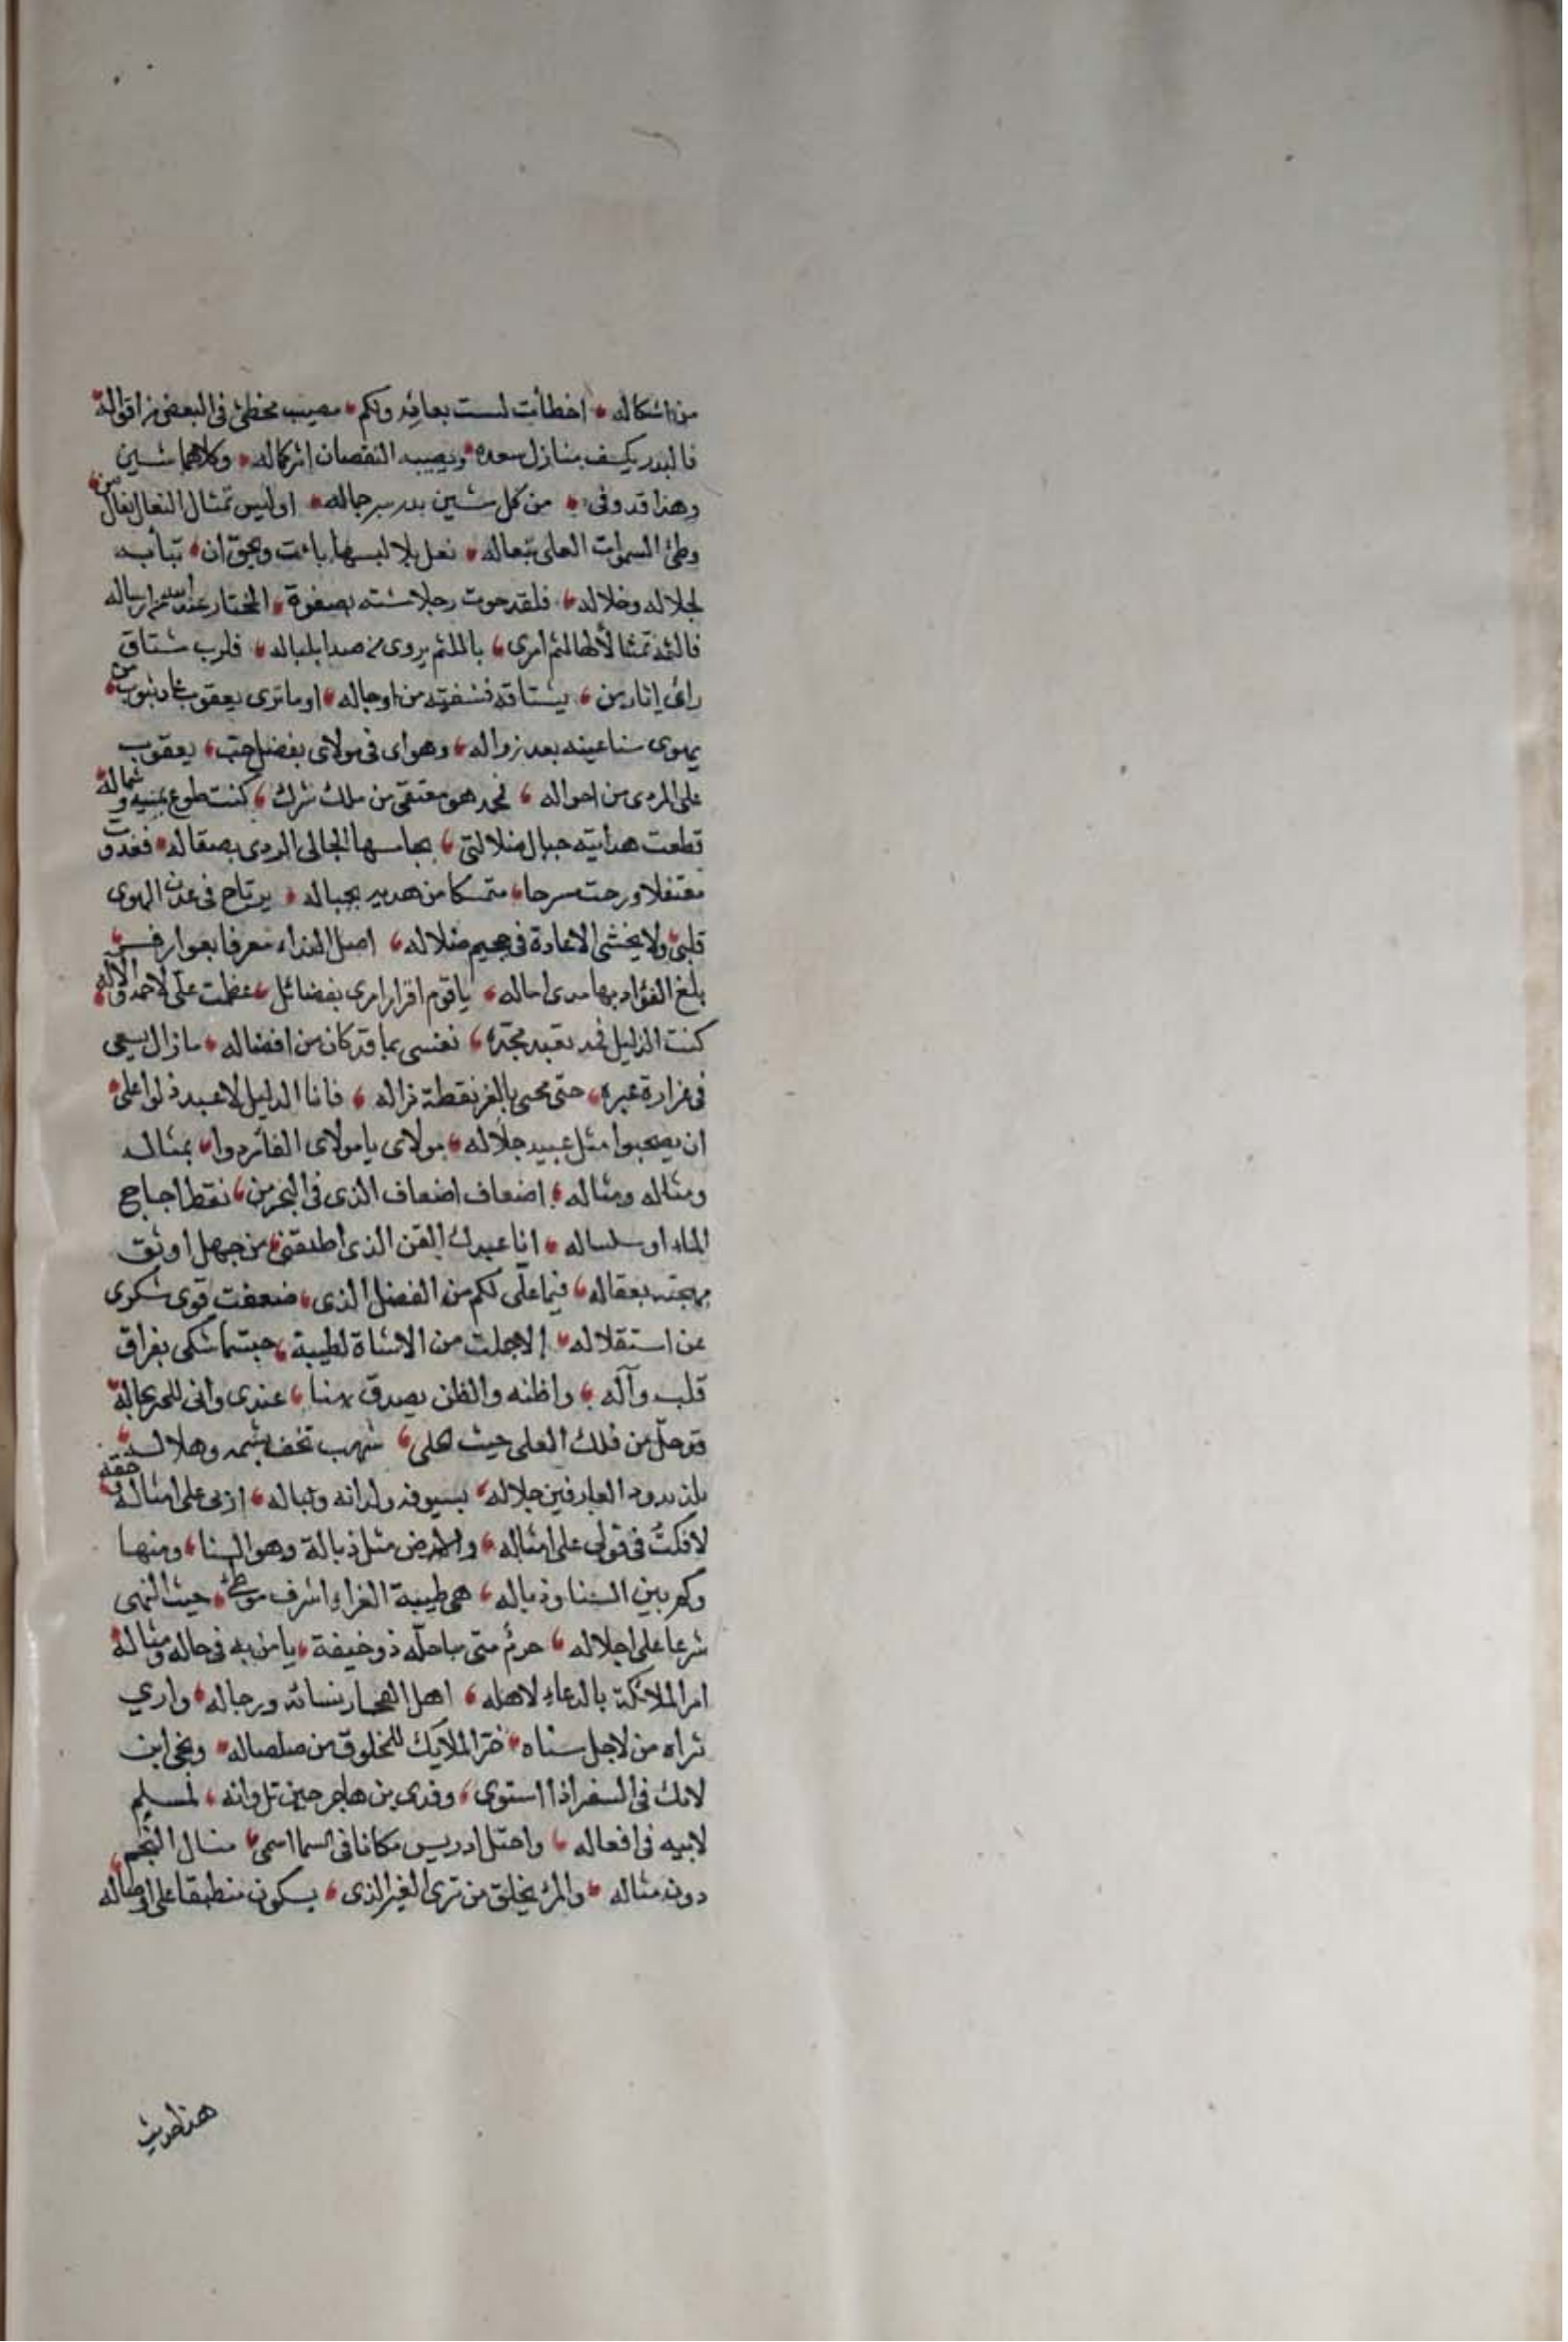 من اشكاله اخطأت لست بعائد ولكم مصيب مخطئ فى البعض من اقواله
فالبدر يكسف بمنازل سعده ويصيبه النقصان اثر كماله وكلاهما شين
وهذا قد وفى من كل شين بدر سر جماله اوليس تمثال النعال نعال من
وطئ السموات العلى بنعاله نعل بلا لبسها باءت وبحق ان
لجلاله وخلاله فلقد حوت رجلا مشت بصفوة المختار عند الله من ارساله
فالثمه تمثالا لها لثم امرئ باللثم يروى من صدا بلباله فلرب مشتاق
راى اثار من يشتاقه فشفيته من اوجاله اوما ترى يعقوب عاد بثوب من
يهوى سنا عينه بعد زواله وهواى فى مولاى بفضل حب يعقوب
على المروى من احواله فمحمد هو معتقى من ملك شرك كنت طوع يمينه وشماله
قطعت هدايته حبال ضلالتى بحسامها الجالى الردى بصقاله فغدوت
معتقلا ورحت مسرحا متمسكا من هديه بحباله يرتاح فى عدن الهوى
قلبى ولا يخشى الاعادة فى جحيم ضلاله اصل النداء معرفا بعوارف
بلغ الفؤاد بها مدى اماله يا قوم اقرار امرئ بفضائل عظمت على لاحمد ولآله
كنت الذليل فمد بعيد مجده نفسى بما قد كان من افضاله ما زال يسعى
فى غزارة عبره حتى محى بالعز نقطة ذاله فانا الدليل لاعبد ذلوا على
ان يصحبوا مثل عبيد جلاله مولاى يا مولاى الفا رددوا بمثاله
ومثاله ومثاله اضعاف اضعاف الذى فى البحر من نقط اجاج
الماء او سلساله انا عبدك القن الذى اطلقتنى من جهل اوثق
مهجته بعقاله فيما على لكم من الفضل الذى ضعفت قوى شكرى
عن استقلاله الا جعلت من الاشاة لطيبة شكى بفراق
قلبه وآله واظنه والظن يصدق ههنا عندى وانى للحر بحاله
وتوحل من فلك العلى حيث على شهب تحف بشمسه وهلاله
العارفين جلاله بسيوفه ولدانه ونباله اربى على امثاله وحقه
لافكت فى قولى على امثاله والارض مثل ذبالة وهو السنا ومنها
وكم بين السنا وذباله هى طيبة الغراء اشرف موطئ حيث النهى
شرعا على اجلاله حرم متى ما حله ذو خيفة يا من به فى حاله ومثاله
امر الملائكة بالدعاء لاهله اهل الفخار نسائه ورجاله وارى
تراه من لاجل سناه خر الملايك للمخلوق من صلصاله ونجى ابن
لامك فى السفر اذا استوى وفدى بن هاجر حين تل وانه لمسلم
لابيه فى افعاله واحتل ادريس مكانا فى السما اسمى منال النجم
دون مثاله والمرء يخلق من ترى الغير الذى يسكون منطبقا على اوصاله
هذا حديث